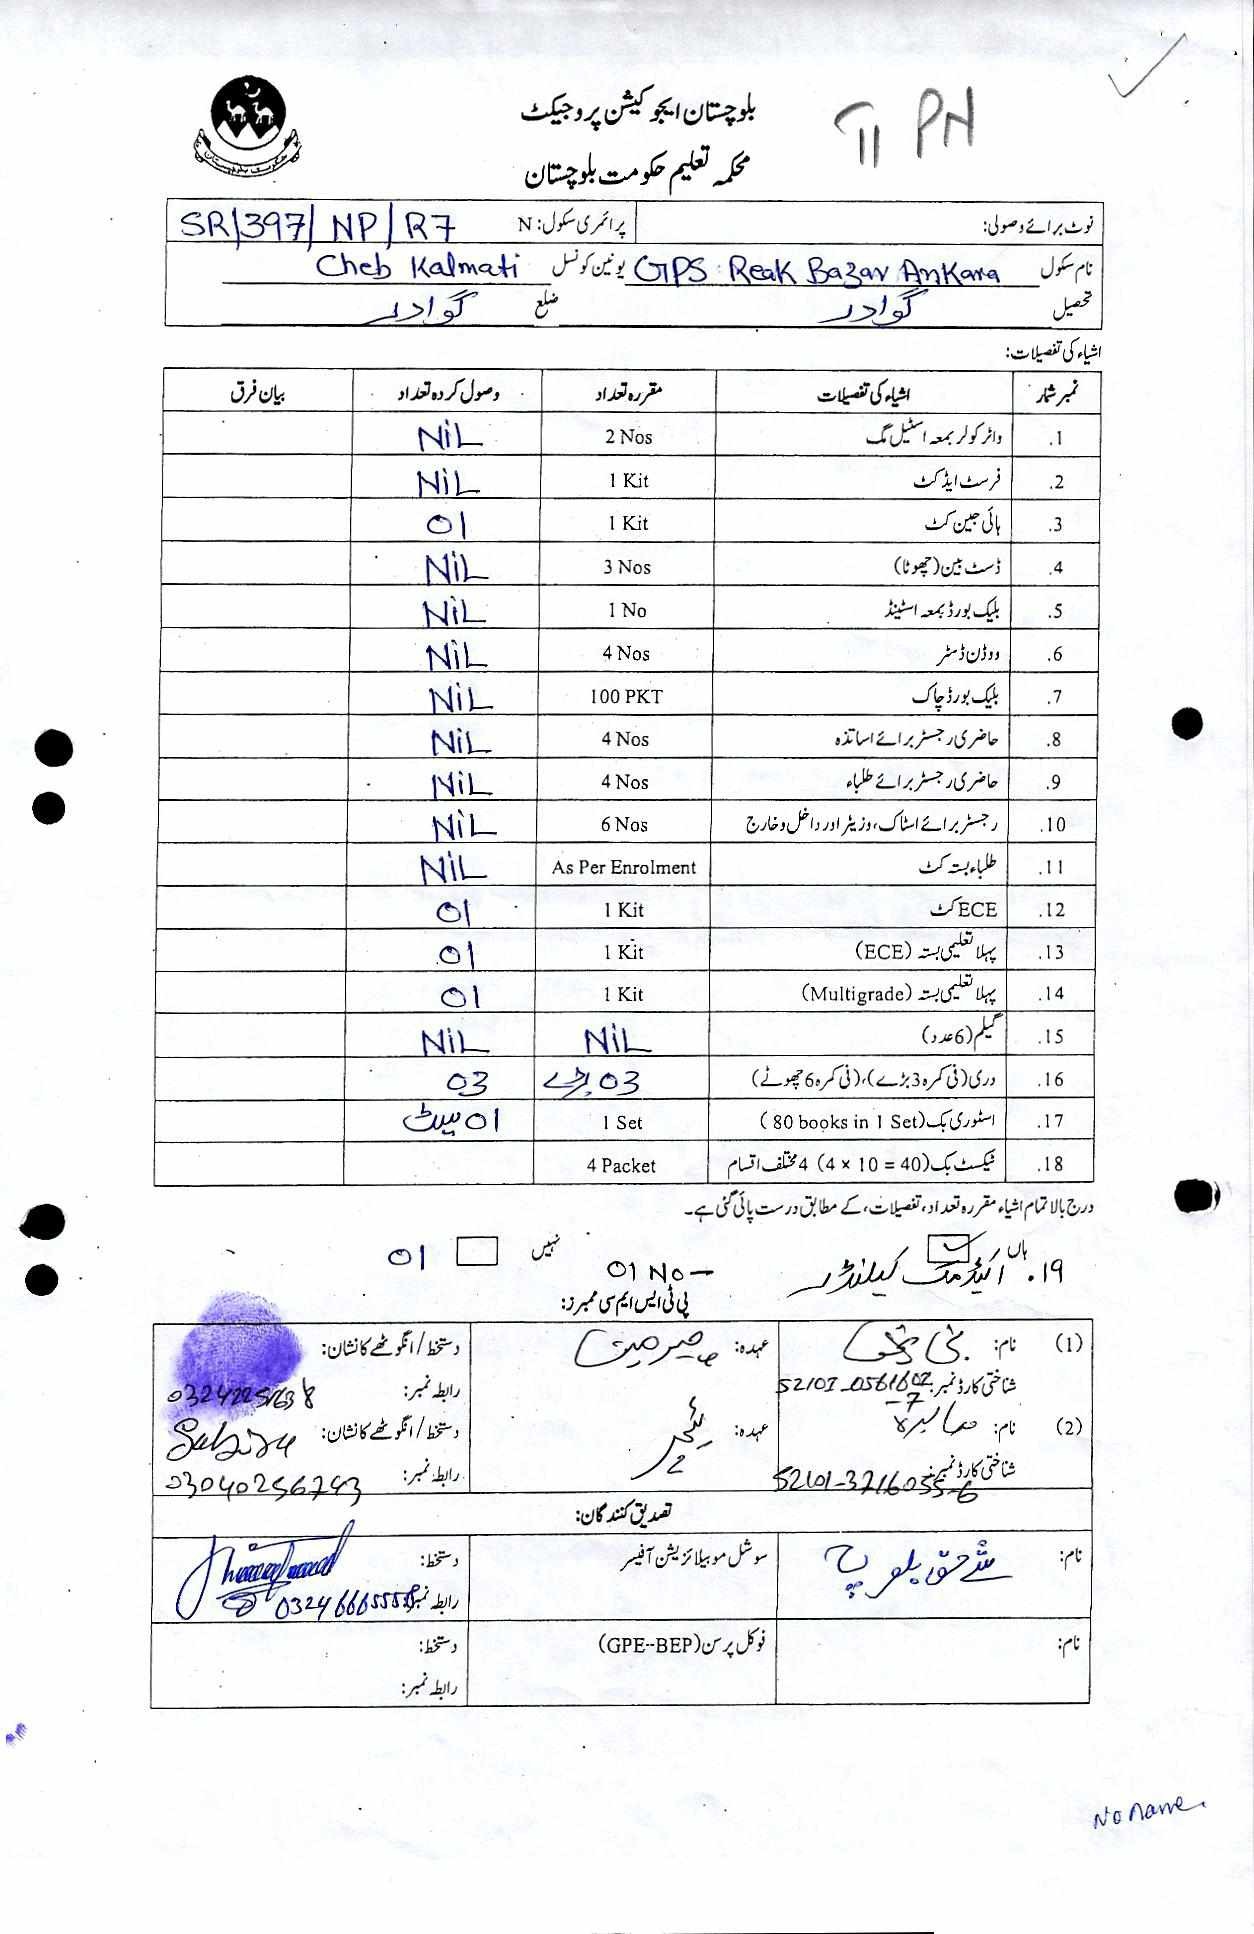 بلوچستان ایجوکیشن پروجیکٹ
محکمہ تعلیم حکومت بلوچستان
PN
نوٹ برائے وصولی: پرائمری سکول: N SR/397/NP/R7
نام سکول GPS Reak Bazar Ankara یونین کونسل Cheb Kalmati
تحصیل گوادر ضلع گوادر
اشیاء کی تفصیلات:
نمبر شمار اشیاء کی تفصیلات مقررہ تعداد وصول کردہ تعداد بیان فرق
1. واٹر کولر بمعہ اسٹیل مگ 2 Nos NiL
2. فرسٹ ایڈ کٹ 1 Kit NiL
3. ہائی جین کٹ 1 Kit 01
4. ڈسٹ بین (چھوٹا) 3 Nos NiL
5. بلیک بورڈ بمعہ اسٹینڈ 1 No NiL
6. ووڈن ڈسٹر 4 Nos NiL
7. بلیک بورڈ چاک 100 PKT NiL
8. حاضری رجسٹر برائے اساتذہ 4 Nos NiL
9. حاضری رجسٹر برائے طلباء 4 Nos NiL
10. رجسٹر برائے اسٹاک، وزیٹر اور داخل و خارج 6 Nos NiL
11. طلباء بستہ کٹ As Per Enrolment NiL
12. ECE کٹ 1 Kit 01
13. پہلا تعلیمی بستہ (ECE) 1 Kit 01
14. پہلا تعلیمی بستہ (Multigrade) 1 Kit 01
15. گیلم (6 عدد) NiL NiL
16. دری (فی کمرہ 3 بڑے)، (فی کمرہ 6 چھوٹے) 03 بڑے 03
17. اسٹوری بک (80 books in 1 Set) 1 Set 01 سیٹ
18. ٹیکسٹ بک (4 × 10 = 40) 4 مختلف اقسام 4 Packet
درج بالا تمام اشیاء مقررہ تعداد، تفصیلات، کے مطابق درست پائی گئی ہے۔
ہاں نہیں
19. اکیڈمک کیلنڈر 01 No 01
پی ٹی ایس ایم سی ممبرز:
(1) نام: عہدہ: چیرمین دستخط/انگوٹھے کا نشان:
شناختی کارڈ نمبر: 52101-0561602-7 رابطہ نمبر:
(2) نام: صابرہ عہدہ: ٹیچر دستخط/انگوٹھے کا نشان: Sabira
شناختی کارڈ نمبر: 52101-3716055-6 رابطہ نمبر: 03040256793
تصدیق کنندگان:
نام: شے حق بلوچ سوشل موبیلائزیشن آفیسر دستخط:
رابطہ نمبر: 03246665558
نام: فوکل پرسن (GPE--BEP) دستخط:
رابطہ نمبر:
No name